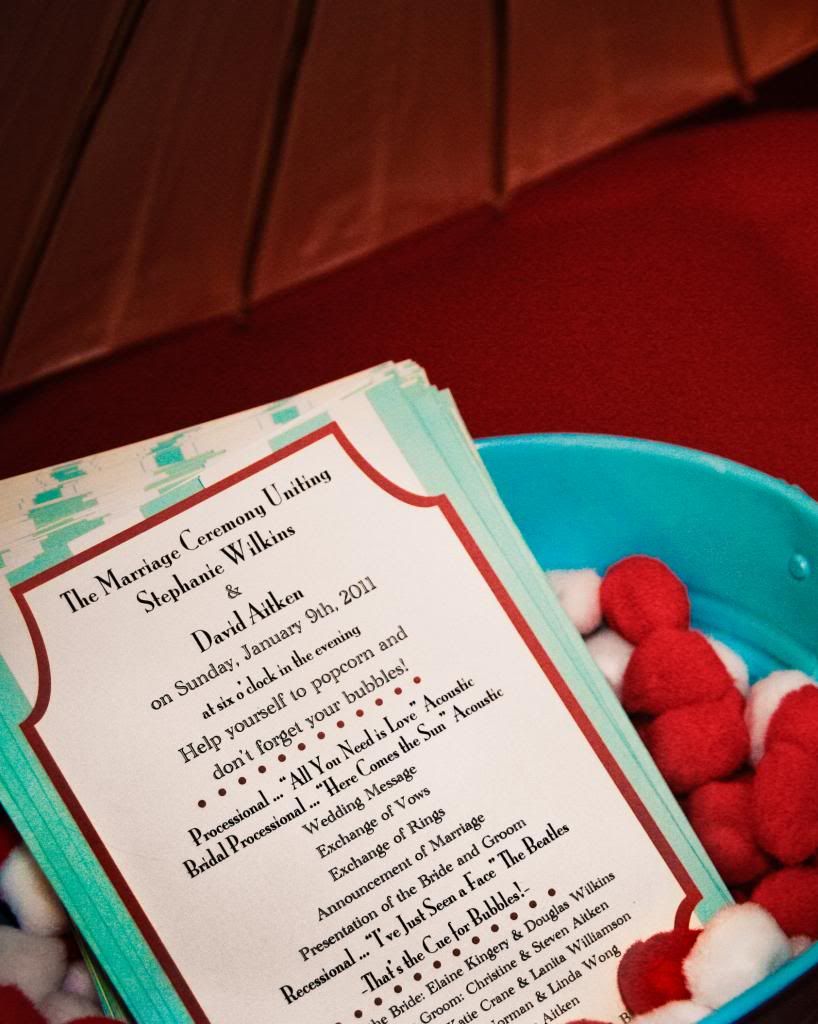 The Marriage Ceremony Uniting
Stephanie Wilkins
&
David Aitken
on Sunday, January 9th, 2011
at six o'clock in the evening
Help yourself to popcorn and
don't forget your bubbles!
Processional ... "All You Need is Love" Acoustic
Bridal Processional ... "Here Comes the Sun" Acoustic
Wedding Message
Exchange of Vows
Exchange of Rings
Announcement of Marriage
Presentation of the Bride and Groom
Recessional ... "I've Just Seen a Face" The Beatles
-That's the Cue for Bubbles!-
the Bride: Elaine Kingery & Douglas Wilkins
Groom: Christine & Steven Aitken
Katie Crane & Lanita Williamson
Norman & Linda Wong
Aitken